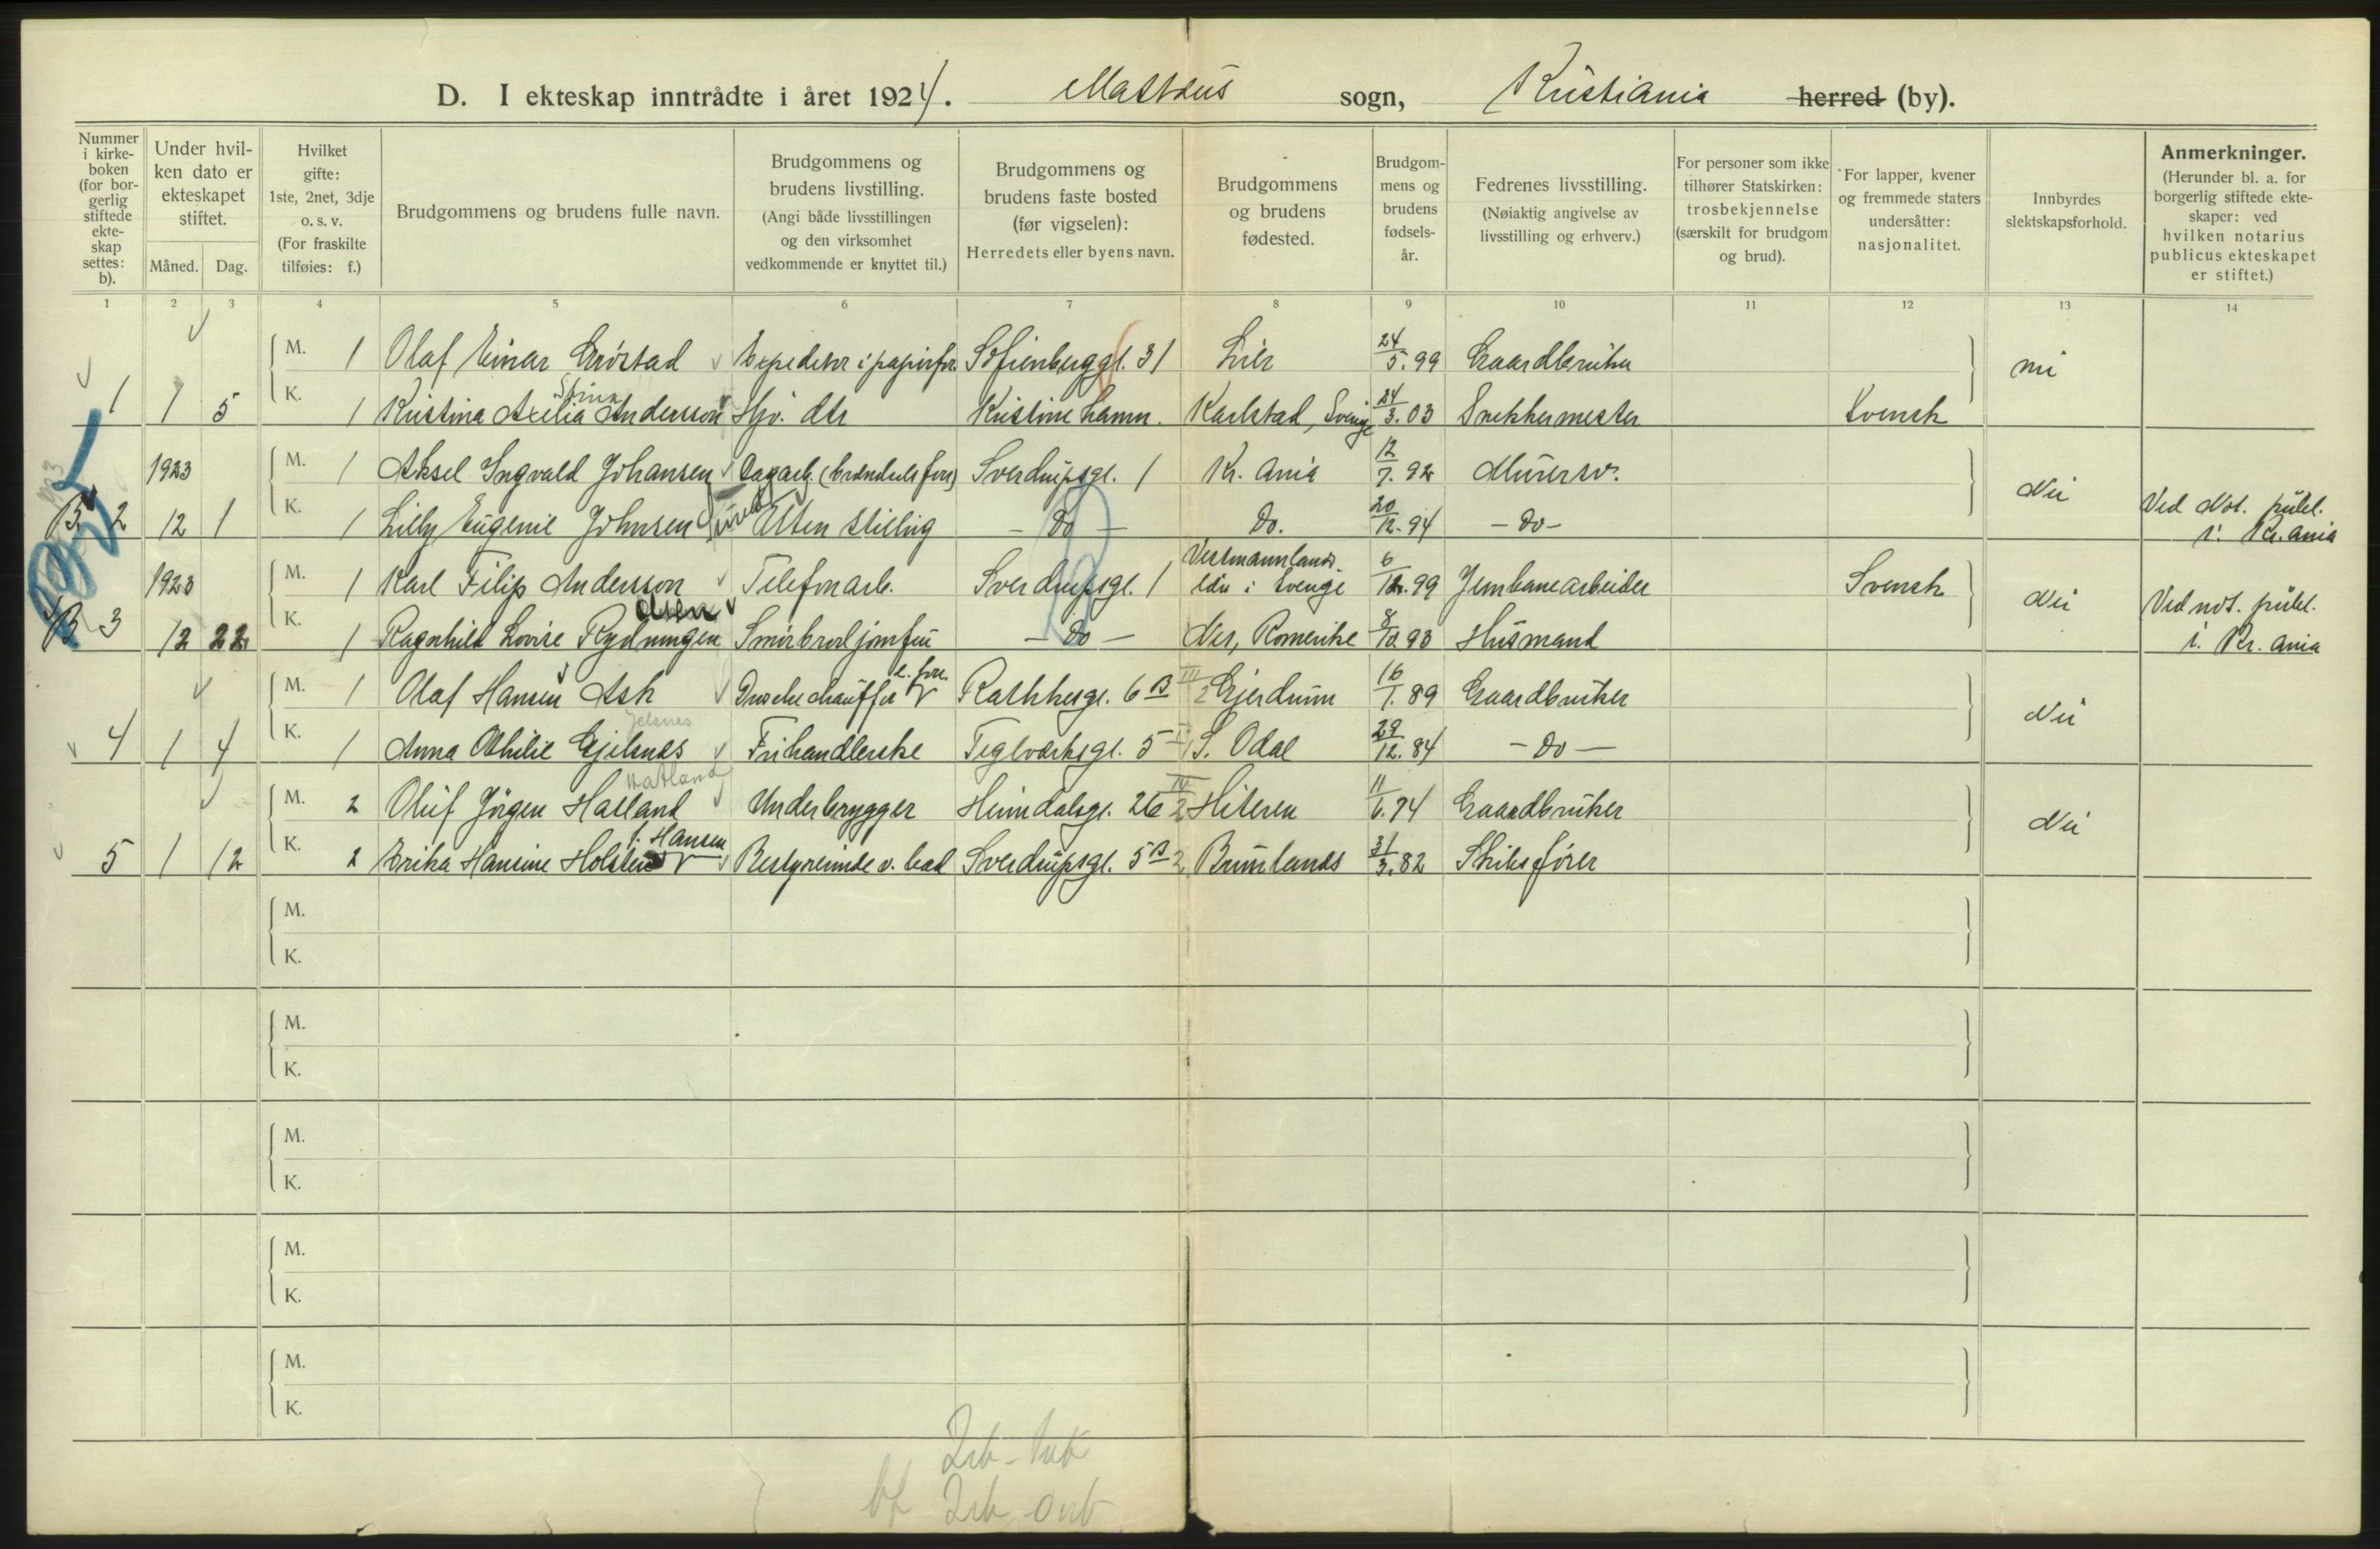 D. I ekteskap inntrådte i året 1924. Mattæus sogn, Kristiania herred (by).
Nummer i kirkeboken (for borgerlig stiftede ekteskap settes: b).
Under hvilken dato er ekteskapet stiftet.
Måned. Dag.
Hvilket gifte: 1ste, 2net, 3dje o. s. v. (For fraskilte tilføies: f.)
Brudgommens og brudens fulle navn.
Brudgommens og brudens livstilling. (Angi både livsstillingen og den virksomhet vedkommende er knyttet til.)
Brudgommens og brudens faste bosted (før vigselen): Herredets eller byens navn.
Brudgommens og brudens fødested.
Brudgommens og brudens fødselsår.
Fedrenes livsstilling. (Nøiaktig angivelse av livsstilling og erhverv.)
For personer som ikke tilhører Statskirken: trosbekjennelse (særskilt for brudgom og brud).
For lapper, kvener og fremmede staters undersåtter: nasjonalitet.
Innbyrdes slektskapsforhold.
Anmerkninger. (Herunder bl. a. for borgerlig stiftede ekteskaper: ved hvilken notarius publicus ekteskapet er stiftet.)
1 2 3 4 5 6 7 8 9 10 11 12 13 14
M. 1 Olaf Einar Grøstad Expeditør i papirfor. Sofienberggt. 31 Lier 24/5.99 Gaardbruker nei
Stina
1 1 5 K. 1 Kristina Axelia Andersson Hjv. dtr Kristinehamn. Karlstad, Sverige 24/3.03 Snekkermester Svensk
1923 M. 1 Aksel Ingvald Johansen Dagarb. (brændselsforr) Sverdrupsgt. 1 Kr. ania 12/7.92 Murersv. Nei
B 2 12 1 K. 1 Lilly Eugenie Johnsen Uten stilling - Do - Do. 20/12.94 - Do - Ved Not. publ. i Kr. ania
1923 M. 1 Karl Filip Andersson Telefonarb. Sverdrupsgt. 1 Vestmannlands län i Sverige 6/12.99 Jernbanearbeider Svensk Nei
Olsen
B 3 12 22 K. 1 Ragnhild Lovise Rydningen Smørbrødjomfru - Do - Nes, Romerike 8/12.93 Husmand Ved not. publ. i. Kr. ania
M. 1 Olaf Hansen Ask Droschechauffør Rathkesgt. 6 B III Gjerdrum 16/1.89 Gaardbruker Nei
Jelsnes
4 1 4 K. 1 Anna Othilie Gjelsnes Frihandlerske Teglverksgt. 5 S. Odal 29/12.84 - Do -
Hatland
M. 2 Oluf Jörgen Halland Underbrygger Heimdalsgt. 26 IV Hiteren 11/6.74 Gaardbruker Nei
f. Hansen
5 1 12 K. 2 Erika Hansine Holsten Bestyrerinde v. bad Sverdrupsgt. 5 B 2 Brunlanes 31/3.82 Skibsfører
M.
K.
M.
K.
M.
K.
M.
K.
M.
K.